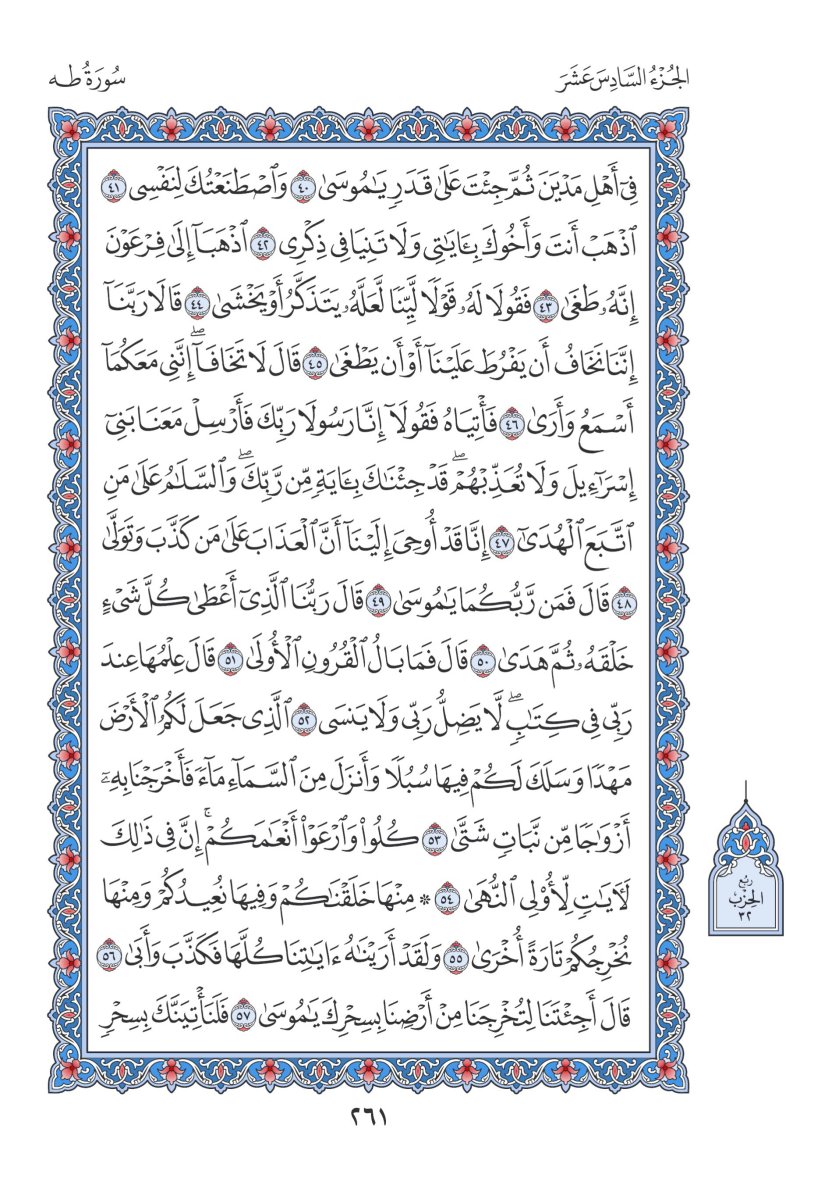 الجُزْءُ السَّادِسَ عَشَرَ
سُورَةُ طه
فِىٓ أَهْلِ مَدْيَنَ ثُمَّ جِئْتَ عَلَىٰ قَدَرٍ يَـٰمُوسَىٰ ٤٠ وَٱصْطَنَعْتُكَ لِنَفْسِى ٤١
ٱذْهَبْ أَنتَ وَأَخُوكَ بِـَٔايَـٰتِى وَلَا تَنِيَا فِى ذِكْرِى ٤٢ ٱذْهَبَآ إِلَىٰ فِرْعَوْنَ
إِنَّهُۥ طَغَىٰ ٤٣ فَقُولَا لَهُۥ قَوْلًا لَّيِّنًا لَّعَلَّهُۥ يَتَذَكَّرُ أَوْ يَخْشَىٰ ٤٤ قَالَا رَبَّنَآ
إِنَّنَا نَخَافُ أَن يَفْرُطَ عَلَيْنَآ أَوْ أَن يَطْغَىٰ ٤٥ قَالَ لَا تَخَافَآ ۖ إِنَّنِى مَعَكُمَآ
أَسْمَعُ وَأَرَىٰ ٤٦ فَأْتِيَاهُ فَقُولَآ إِنَّا رَسُولَا رَبِّكَ فَأَرْسِلْ مَعَنَا بَنِىٓ
إِسْرَٰٓءِيلَ وَلَا تُعَذِّبْهُمْ ۖ قَدْ جِئْنَـٰكَ بِـَٔايَةٍ مِّن رَّبِّكَ ۖ وَٱلسَّلَـٰمُ عَلَىٰ مَنِ
ٱتَّبَعَ ٱلْهُدَىٰٓ ٤٧ إِنَّا قَدْ أُوحِىَ إِلَيْنَآ أَنَّ ٱلْعَذَابَ عَلَىٰ مَن كَذَّبَ وَتَوَلَّىٰ
٤٨ قَالَ فَمَن رَّبُّكُمَا يَـٰمُوسَىٰ ٤٩ قَالَ رَبُّنَا ٱلَّذِىٓ أَعْطَىٰ كُلَّ شَىْءٍ
خَلْقَهُۥ ثُمَّ هَدَىٰ ٥٠ قَالَ فَمَا بَالُ ٱلْقُرُونِ ٱلْأُولَىٰ ٥١ قَالَ عِلْمُهَا عِندَ
رَبِّى فِى كِتَـٰبٍ ۖ لَّا يَضِلُّ رَبِّى وَلَا يَنسَى ٥٢ ٱلَّذِى جَعَلَ لَكُمُ ٱلْأَرْضَ
مَهْدًا وَسَلَكَ لَكُمْ فِيهَا سُبُلًا وَأَنزَلَ مِنَ ٱلسَّمَآءِ مَآءً فَأَخْرَجْنَا بِهِۦٓ
أَزْوَٰجًا مِّن نَّبَاتٍ شَتَّىٰ ٥٣ كُلُوا۟ وَٱرْعَوْا۟ أَنْعَـٰمَكُمْ ۗ إِنَّ فِى ذَٰلِكَ
لَـَٔايَـٰتٍ لِّأُو۟لِى ٱلنُّهَىٰ ٥٤ ۞ مِنْهَا خَلَقْنَـٰكُمْ وَفِيهَا نُعِيدُكُمْ وَمِنْهَا
نُخْرِجُكُمْ تَارَةً أُخْرَىٰ ٥٥ وَلَقَدْ أَرَيْنَـٰهُ ءَايَـٰتِنَا كُلَّهَا فَكَذَّبَ وَأَبَىٰ ٥٦
قَالَ أَجِئْتَنَا لِتُخْرِجَنَا مِنْ أَرْضِنَا بِسِحْرِكَ يَـٰمُوسَىٰ ٥٧ فَلَنَأْتِيَنَّكَ بِسِحْرٍ
رُبْعُ
الحِزْبِ
٣٢
٢٦١